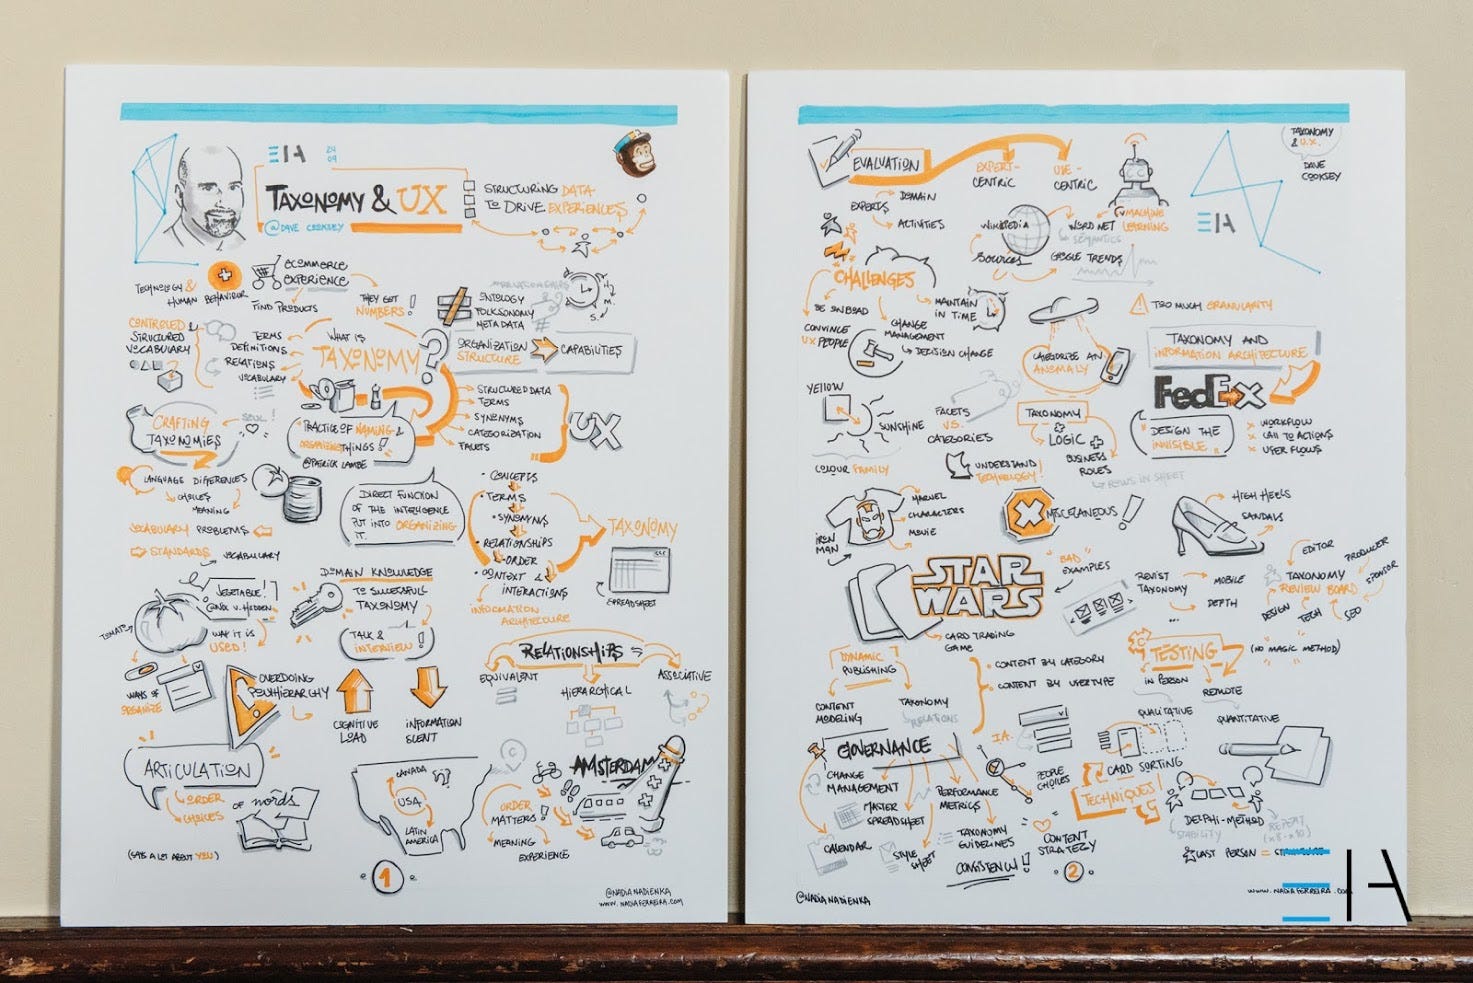 EIA
29
09
TAXONOMY & UX
@DAVE COOKSEY
STRUCTURING DATA
TO DRIVE EXPERIENCES
TECHNOLOGY &
HUMAN BEHAVIOR
ECOMMERCE
EXPERIENCE
FIND PRODUCTS
THEY GOT
NUMBERS!
ONTOLOGY
FOLKSONOMY
METADATA
#
H.
M.
S.
CONTROLED
STRUCTURED
VOCABULARY
TERMS
DEFINITIONS
RELATIONS
VOCABULARY
WHAT IS
TAXONOMY?
ORGANIZATION
STRUCTURE
CAPABILITIES
CRAFTING
TAXONOMIES
SOUL!
PRACTICE OF NAMING &
ORGANIZING THINGS!
@PATRICK LAMBE
STRUCTURED DATA
TERMS
SYNONYMS
CATEGORIZATION
FACETS
UX
LANGUAGE DIFFERENCES
CHOICES
MEANING
VOCABULARY PROBLEMS
STANDARDS
VOCABULARY
DIRECT FUNCTION
OF THE INTELLIGENCE
PUT INTO ORGANIZING
IT.
CONCEPTS
TERMS
SYNONYMS
RELATIONSHIPS
ORDER
CONTEXT &
INTERACTIONS
INFORMATION
ARCHITECTURE
TAXONOMY
SPREADSHEET
TOMATO
VEGETABLE!
WAY IT IS
USED!
DOMAIN KNOWLEDGE
TO SUCCESSFULL
TAXONOMY
TALK &
INTERVIEW!
WAYS OF
ORGANIZE
OVERDOING
POLYHIERARCHY
COGNITIVE
LOAD
INFORMATION
SCENT
RELATIONSHIPS
EQUIVALENT
HIERARCHICAL
ASSOCIATIVE
ARTICULATION
ORDER
CHOICES
OF words
(SAYS A LOT ABOUT YOU)
CANADA
USA
LATIN
AMERICA
ORDER
MATTERS!
MEANING
EXPERIENCE
AMSTERDAM
1
@NADIANADIENKA
WWW.NADIAFERREIRA.COM
EVALUATION
EXPERT-
CENTRIC
USE-
CENTRIC
TAXONOMY
& U.X.
DAVE
COOKSEY
EIA
EXPERTS
DOMAIN
ACTIVITIES
WIKIPEDIA
SOURCES
WORD NET
SEMANTICS
GOOGLE TRENDS
MACHINE
LEARNING
CHALLENGES
BE ONBOAD
CONVINCE
UX PEOPLE
CHANGE
MANAGEMENT
DECISION CHANGE
MAINTAIN
IN TIME
CATEGORIZE AN
ANOMALY
TOO MUCH GRANULARITY
TAXONOMY AND
INFORMATION ARCHITECTURE
FedEx
YELLOW
SUNSHINE
COLOUR FAMILY
FACETS
V.S.
CATEGORIES
TAXONOMY
+
LOGIC +
BUSINESS
RULES
ROWS IN SHEET
DESIGN THE
INVISIBLE
WORKFLOW
CALL TO ACTIONS
USER FLOWS
UNDERSTAND
TECHNOLOGY!
IRON
MAN
MARVEL
CHARACTERS
MOVIE
MISCELANEOUS!
HIGH HEELS
SANDALS
STAR
WARS
CARD TRADING
GAME
"BAD"
EXAMPLES
REVISIT
TAXONOMY
MOBILE
DEPTH
...
EDITOR
PRODUCER
SPONSOR
TAXONOMY
REVIEW BOARD
DESIGN
TECH
SEO
DYNAMIC
PUBLISHING
CONTENT
MODELING
TAXONOMY
RELATIONS
CONTENT BY CATEGORY
CONTENT BY USERTYPE
TESTING
(NO MAGIC METHOD)
IN PERSON
REMOTE
QUALITATIVE
QUANTITATIVE
GOVERNANCE
CHANGE
MANAGEMENT
MASTER
SPREADSHEET
CALENDAR
STYLE
SHEET
PERFORMANCE
METRICS
TAXONOMY
GUIDELINES
CONSISTENCY!
IA
PEOPLE
CHOICES
CONTENT
STRATEGY
CARD SORTING
TECHNIQUES
DELPHI-METHOD
STABILITY
REPEAT
(x8-x10)
LAST PERSON =
2
@NADIANADIENKA
WWW.NADIAFERREIRA.COM
EIA